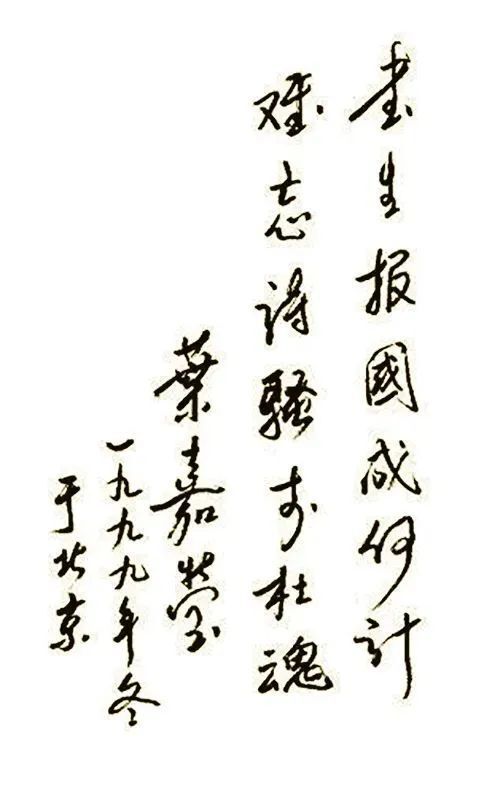 书生报國成何计
难忘诗騷李杜魂
葉嘉莹
一九九九年冬
于北京